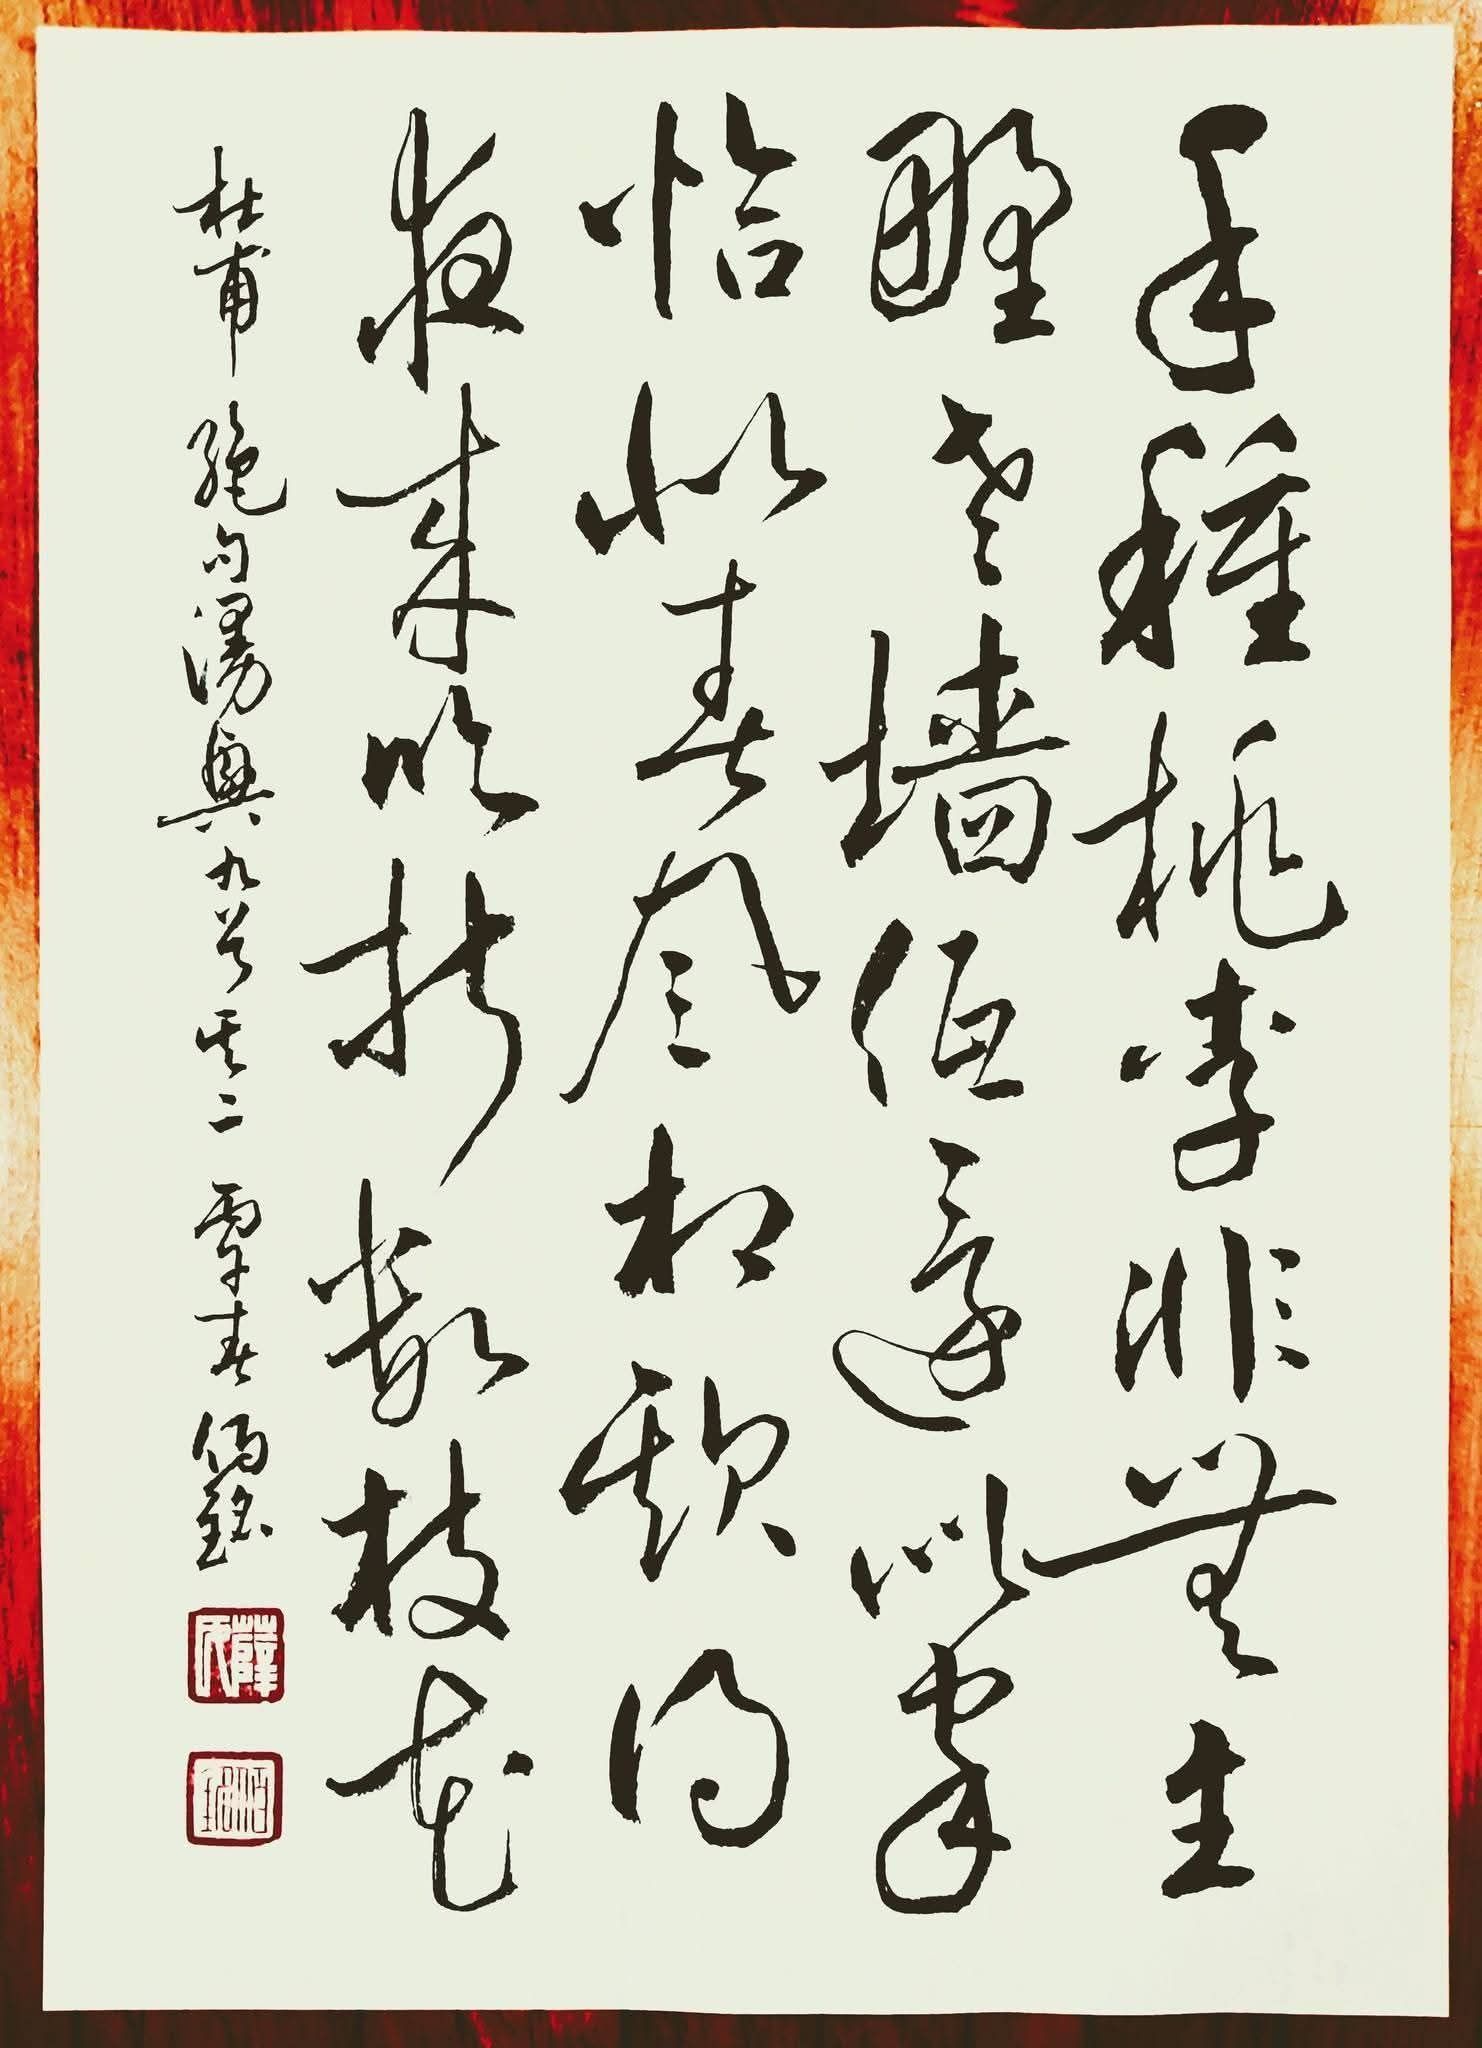 手種桃李非無主
野老墻低還似家
恰似春風相欺得
夜來吹折數枝花
杜甫絕句漫興九首其二 春
薛氏